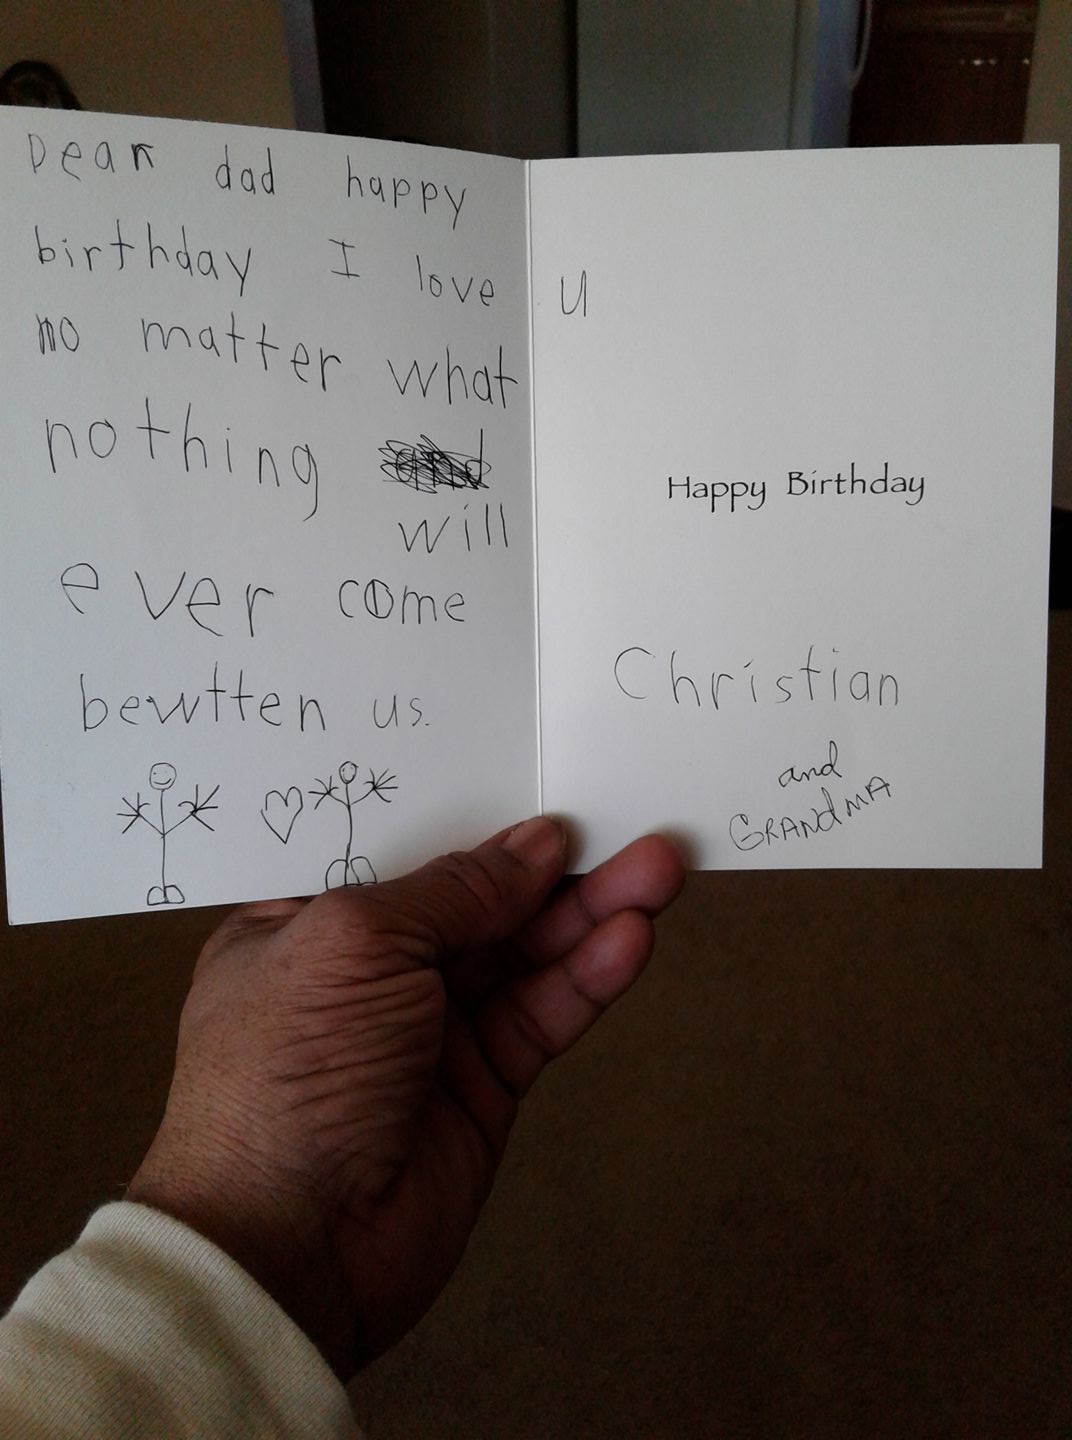 Dear dad happy
birthday I love u
no matter what
nothing
will
ever come
bewtten us.
Happy Birthday
Christian
and
GRANdMA